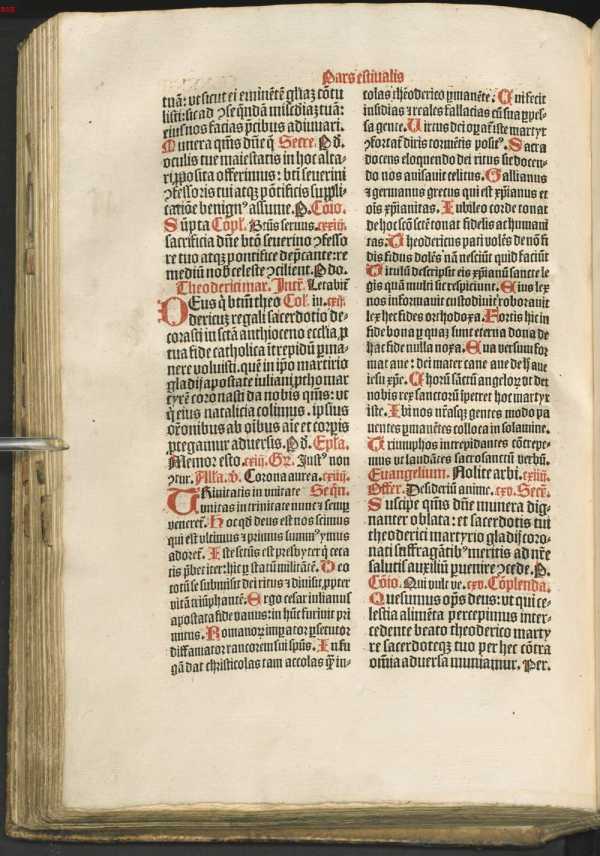 Pars estiualis
tuā: vt sicut ei eminētē gl'iaz cōtu
listi: sic ad ɔseq̄ndā misc̄diaz tuā:
eius nos facias p̄cibus adiuuari.
Munera q̄ms dn̄e q̄ Secre. P̄ d.
oculis tue maiestatis in hoc alta-
ri ꝓposita offerimus: vti seuerini
ɔfessoris tui atqȝ pōtificis suppli-
catiōe benignꝰ assume. P. Cōio.
Sūpta Copl'. Btūs seruus. cxxiij.
sacrificia dn̄e btō seuerino ɔfesso
re tuo atqȝ pontifice dep̄cante: re
mediū nob̄ celeste ɔcilient. P̄ do.
Theoderici mar. Intr̄. Letabit̄
DEus q̄ btm̄ theo Col. in. cxij.
dericuȝ regali sacerdotio de-
corasti in sctā anthioceno ecclīa ꝑ
tua fide catholica ītrepidū ꝑma-
nere voluisti. quē in ip̄o martirio
gladij apostate iuliani ꝓthomar
tyrē coronasti da nobis q̄ms: vt
q̄ eius natalicia colimus. ipsius
or̄onibus ab oībus aīe et corpis
ꝓtegamur aduersis. P̄ d. Epl'a.
Memor esto. cxiij. Gr̄. Justꝰ non
ɔtur. All'a. v̄. Corona aurea. cxiiij.
TRiuitatis in vnitate Seqn̄.
vnitas in trinitate nunc ⁊ semꝑ
veneret̄. Hoc qd̄ deus est nos scimus
qui est vltimus ⁊ primus summꝰ ymus
adoret̄. Iste sctūs est presbyter q̄ ceca
tis p̄bet iter: hic ꝑ statū militātē. Deo
totū se submisit dei ritus ⁊ diuisit. ꝓpter
vitā triūphantē. Ergo cesar iulianus
apostata fide vanus: in hūc furiuit pri
mitus. Romanoꝝ imꝑator ꝑsecutor
diffamiator rancorem sui spūs. In fu
gā dat christicolas tam accolas q̄ꝫ in-
colas rheoderico ꝑmanēte. Qui fecit
insidias ⁊ reales fallacias cū sua ꝑpes-
sa gente. Virtus dei oꝑat iste martyr
⁊ fortat̄ diris tormētis positꝰ. Sacra
docens eloquendo dei ritus sic docen-
do nos auisauit celitus. Gallianus
⁊ germanus grecus qui est xp̄ianus et
oīs xp̄ianitas. Iubileo corde tonat
de hoc scō sctē tonat fidelis ac humani
tas. Theodericus pati volēs de nō fi
dis fidus dolēs nā nesciūt quid faciūt
Titulū descripsit eis xp̄ianū sancte le
gis quā multi sic respiciunt. Eius lex
nos informauit custodiuit ⁊ roborauit
lex hec fides orthodoxa. Fortis hic in
fide bona ꝑ quaȝ sunt eterna dona de
hac fide nulla noxa. Eua versum for
mat aue: dei mater cane aue dulc̄ aue
iesu xp̄e. Chorū sāctū angeloꝝ vt det
nobis rex sanctorū īpetret hoc martyr
iste. Ibi nos nr̄asqȝ gentes modo pa
uentes ꝑmanētes colloca in solamine.
Triumphos intrepidantes cōtrepe-
mus vt laudātes sacrosanctū verbū.
Euangelium. Nolite arbi. cxiiij.
Offer. Desideriū anime. cxv. Secr̄.
Suscipe q̄ms dn̄e munera dig-
nanter oblata: et sacerdotis tui
theoderici martyrio gladij coro-
nati suffragātibꝰ meritis ad nr̄e
salutis auxiliū ꝓuenire ɔcede. P.
Cōio. Qui vult ve. cxv. Cōplenda.
Quesumus op̄s deus: vt qui ce-
lestia alimēta percepimus inter-
cedente beato theoderico marty
re sacerdoteqȝ tuo per hec cōtra
omīa aduersa muniamur. Per.